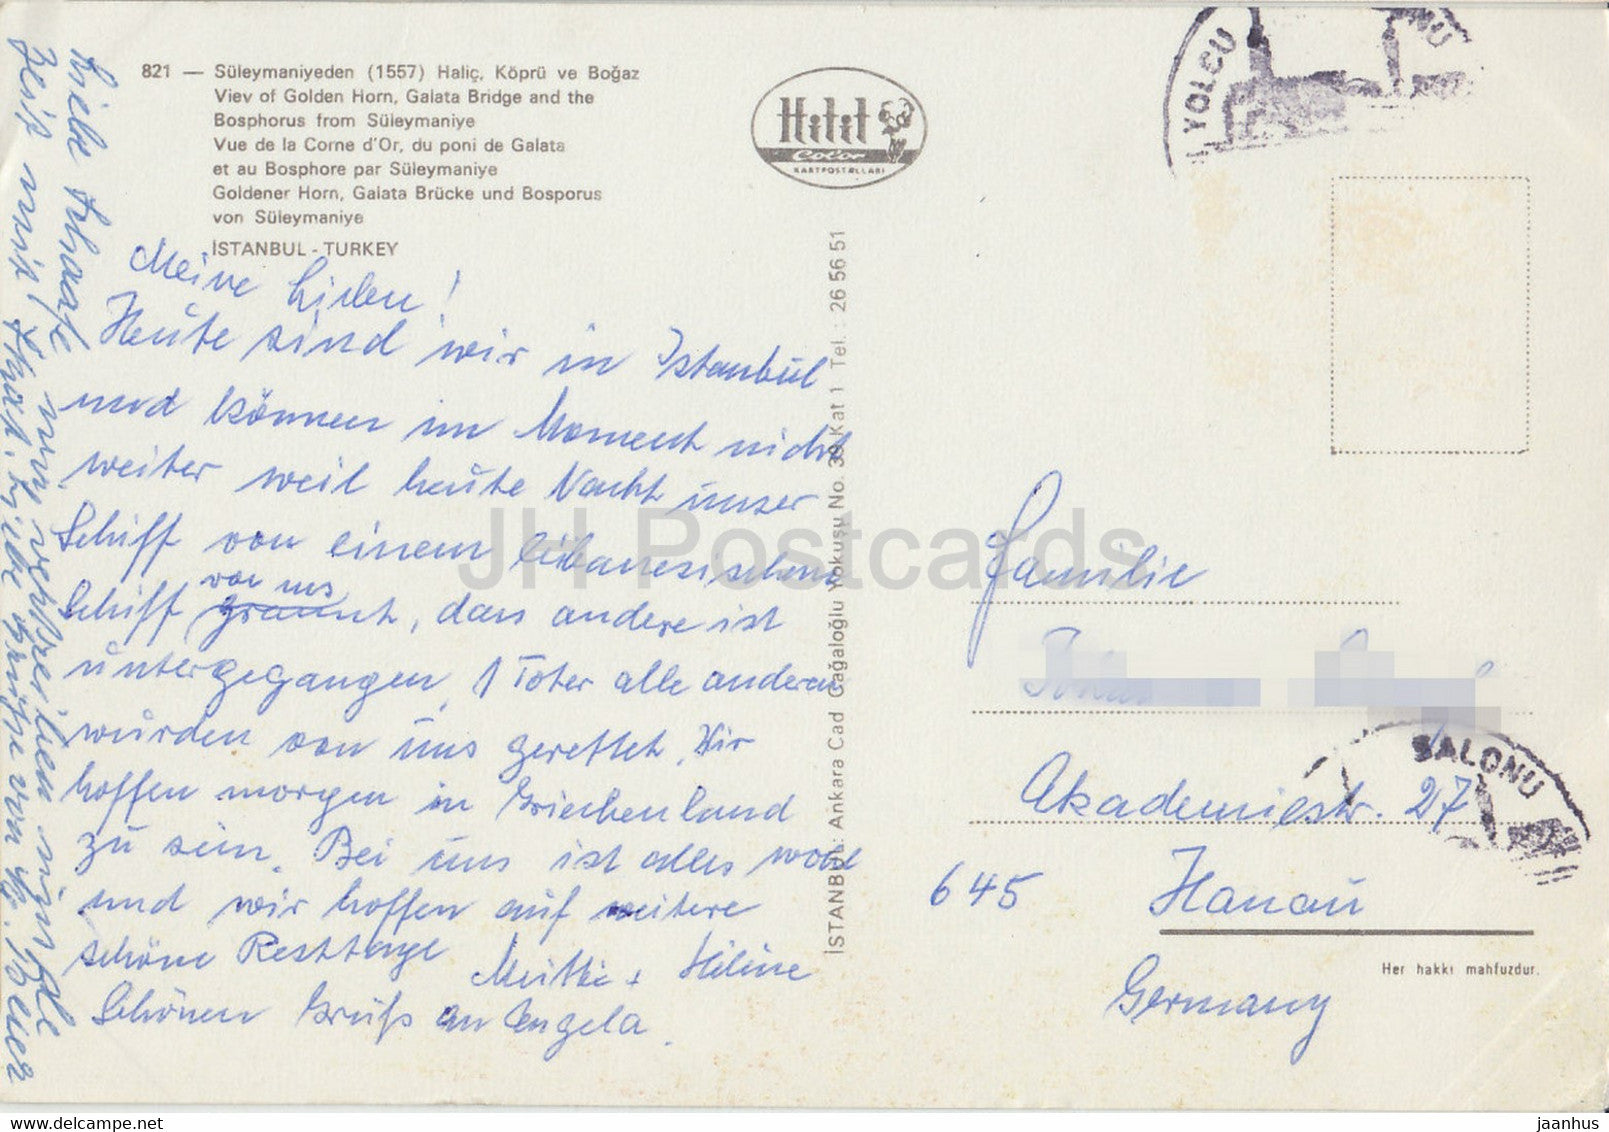 821 — Süleymaniyeden (1557) Haliç, Köprü ve Boğaz
Viev of Golden Horn, Galata Bridge and the
Bosphorus from Süleymaniye
Vue de la Corne d'Or, du poni de Galata
et au Bosphore par Süleymaniye
Goldener Horn, Galata Brücke und Bosporus
von Süleymaniye
İSTANBUL - TURKEY
Hitit
Color
KARTPOSTALLARI
YOLCU
NU
Meine Lieben!
Heute sind wir in Istanbul
und können im Moment nicht
weiter weil heute Nacht unser
Schiff von einem libanesischen
von uns
Schiff gerammt, das andere ist
untergegangen, 1 Toter alle anderen
wurden von uns gerettet. Wir
hoffen morgen in Griechenland
zu sein. Bei uns ist alles wohl
und wir hoffen auf weitere
schöne Resttage
Mutti + Helene
Schönen Gruß an Angela.
Liebe
nur
mit
Liebe Grüße von
İSTANBUL: Ankara Cad Cağaloğlu Yokuşu No. 39 Kat 1 Tel.: 26 56 51
Familie
Akademiestr. 27
SALONU
645 Hanau
Germany
Her hakkı mahfuzdur.
JH Postcards
jaanhus ©
www.delcampe.net